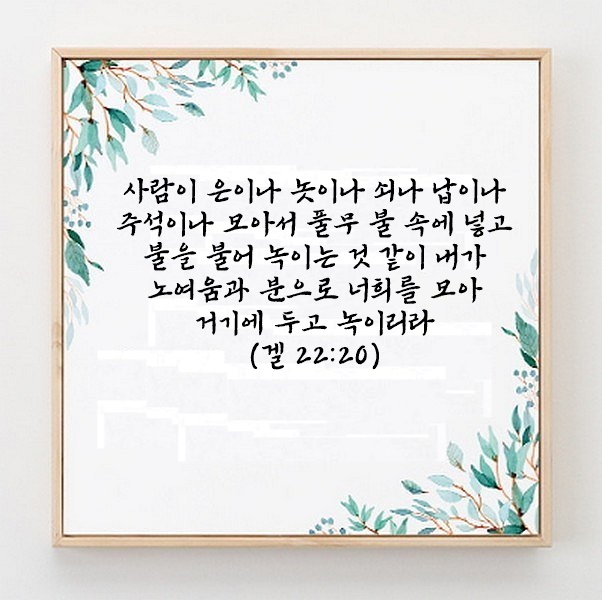 사람이 은이나 놋이나 쇠나 납이나
주석이나 모아서 풀무 불 속에 넣고
불을 불어 녹이는 것 같이 내가
노여움과 분으로 너희를 모아
거기에 두고 녹이리라
(겔 22:20)